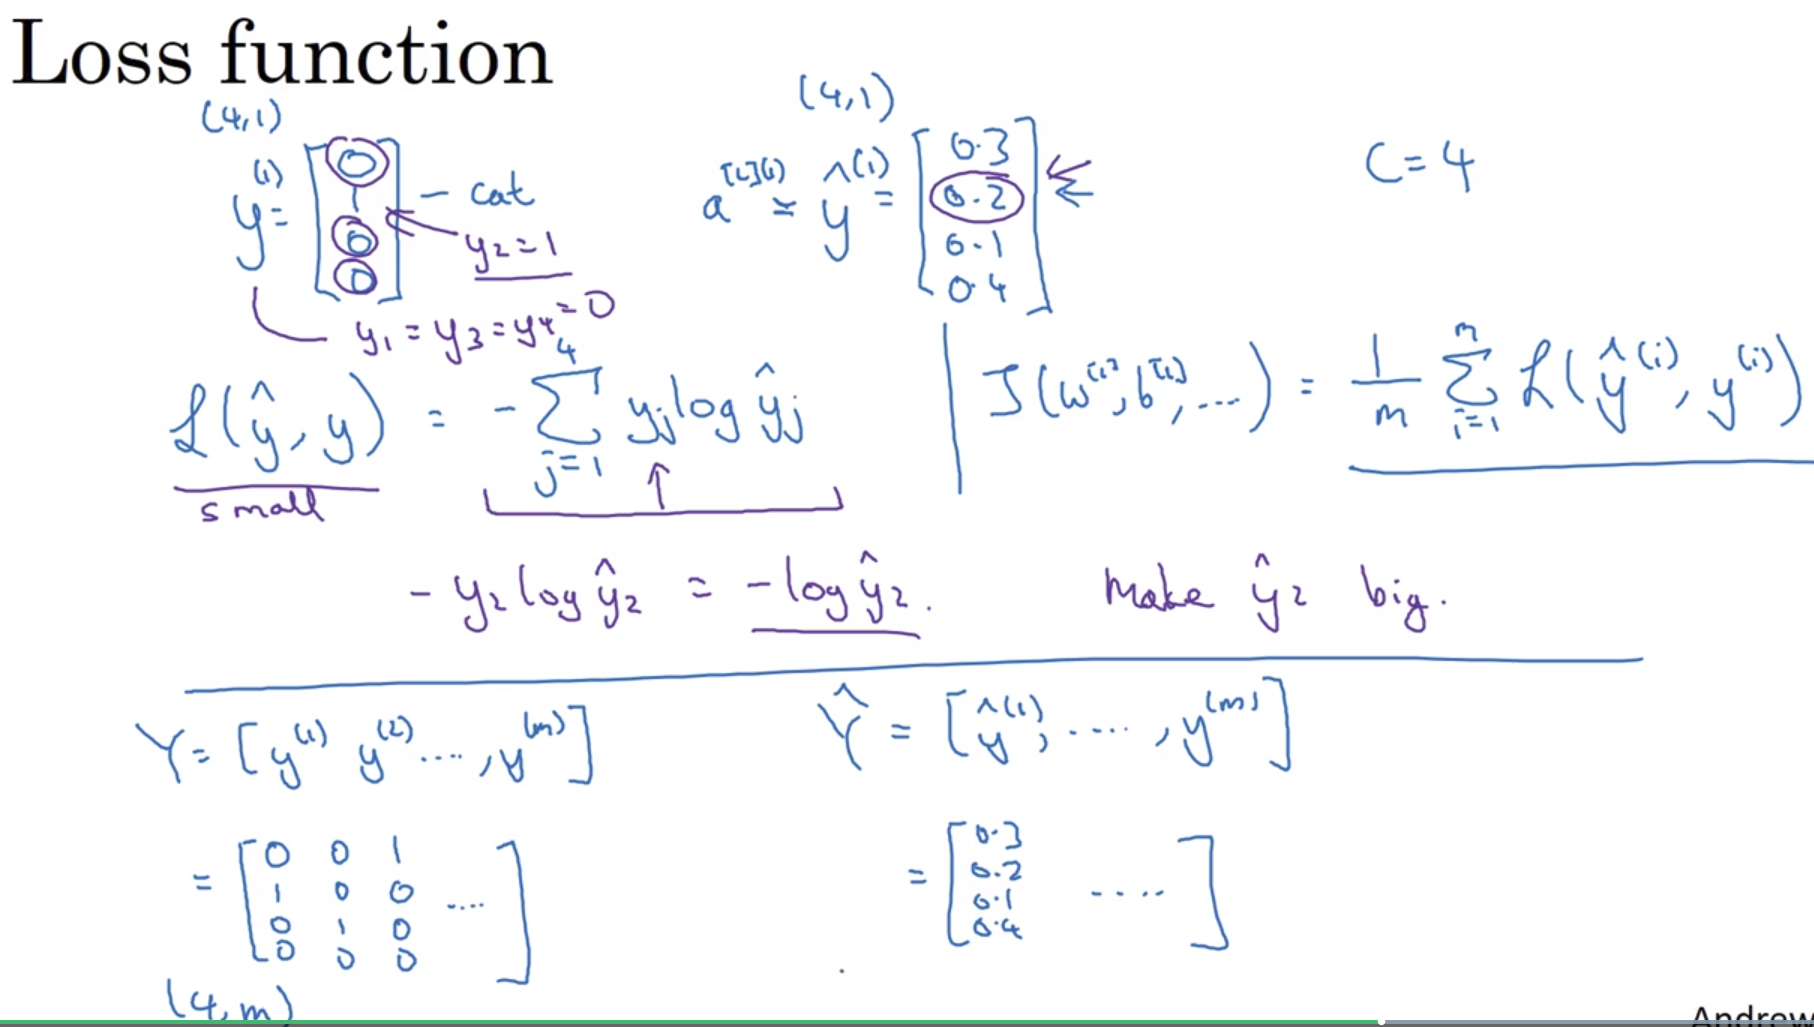 Loss function
(4,1)
y⁽¹⁾ = [0 1 0 0] - cat
y₂=1
y₁ = y₃ = y₄ = 0
(4,1)
a^[L](1) = ŷ^(1) = [0.3 0.2 0.1 0.4]
C=4
ℒ(ŷ, y) = - Σ_{j=1}^{4} y_j log ŷ_j
small
J(w^[1], b^[1], ...) = 1/m Σ_{i=1}^{m} ℒ(ŷ^(i), y^(i))
- y₂ log ŷ₂ = - log ŷ₂. Make ŷ₂ big.
Y = [y^(1) y^(2) ...., y^(m)]
= [0 0 1
1 0 0 ....
0 1 0
0 0 0]
(4,m)
Ŷ = [ŷ^(1), ....., y^(m)]
= [0.3
0.2 ....
0.1
0.4]
Andrew